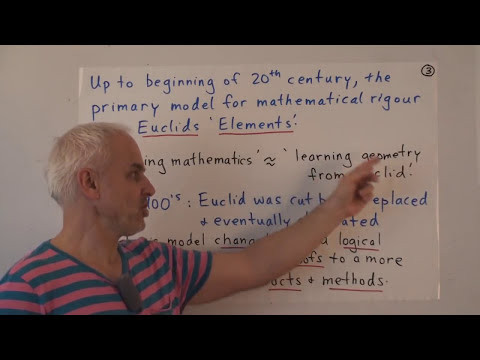 ③
Up to beginning of 20th century, the
primary model for mathematical rigour
Euclids 'Elements'.
ing mathematics' ≈ 'learning geometry
from clid'.
00's: Euclid was cut b replaced
& eventually d ated
model chan d logical
ofs to a more
cts & methods.